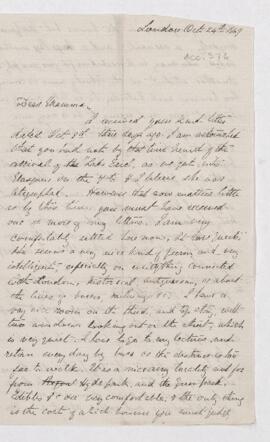 London Oct 24th 1869
acc. 376
Dear Mamma,
I received your kind letter
dated Oct 8th three days ago. I am astonished
that you had not by that time heard of the
arrival of the Lake Erie, as we got into
on the 4th & I believe she was
telegraphed. However that now matters little
as by this time, you must have received
one or more of my letters. I am very
comfortably settled here now,
She seems a very nice kind of person and very
intelligent, especially on everything connected
with London, historical, antiquarian, or about
the lines of buses, railways &c. I have a
very nice room on the third, and top story, with
two windows looking out on the street, which
is very quiet. I have to go to my lectures, and
return every day by bus as the distance is too
far to walk. It is a nice airy locality not far
from Hyde park, and the Green park.
Edibles &c are very comfortable, & the only thing
is the cost of which however you must judge